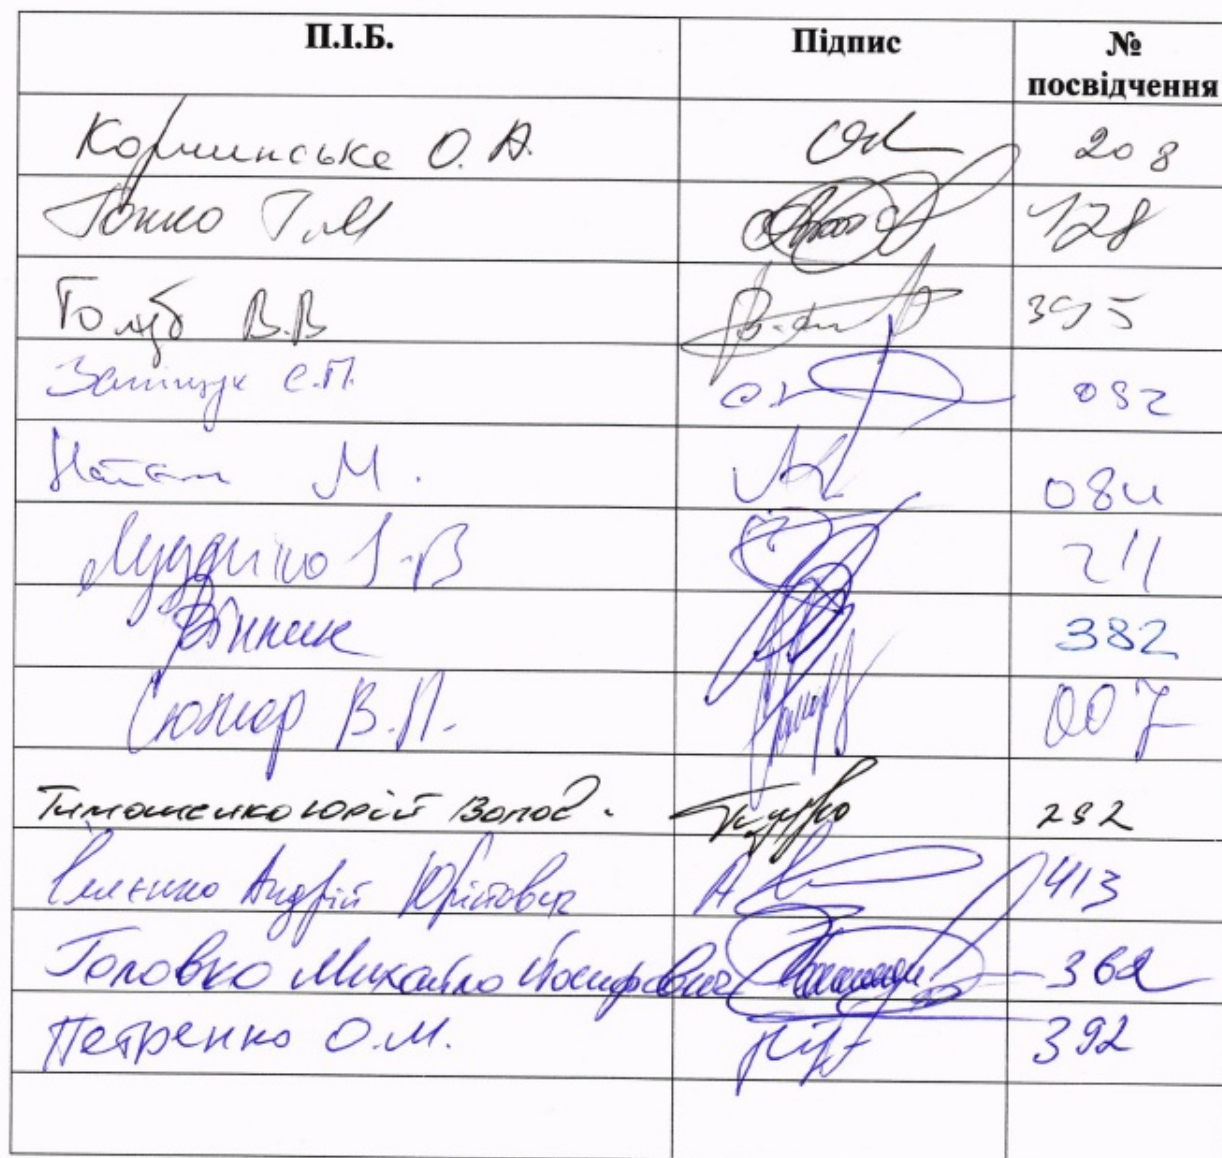 П.І.Б. Підпис № посвідчення
О. А. 208
Гопко Г.М 128
Голуб В.В 395
Заліщук Є.П. 092
М. 084
І.В 211
Вінник 382
Сюмар В.П. 007
Тимошенко Юрій Волод. 292
Іллєнко Андрій Юрійович 413
Головко Михайло Йосифович 362
Петренко О.М. 392